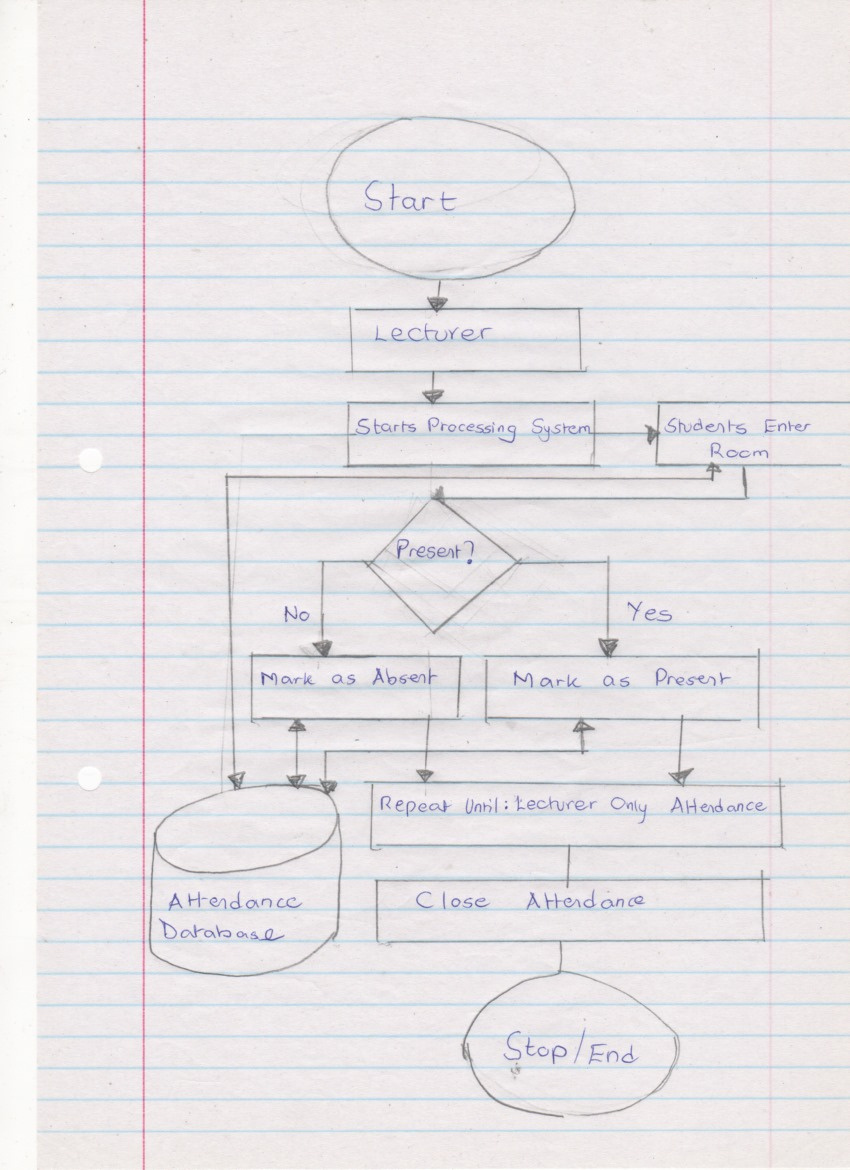 Start
Lecturer
Starts Processing System
Students Enter
Room
Present?
No
Yes
Mark as Absent
Mark as Present
Repeat Until: Lecturer Only Attendance
Attendance
Database
Close Attendance
Stop/End